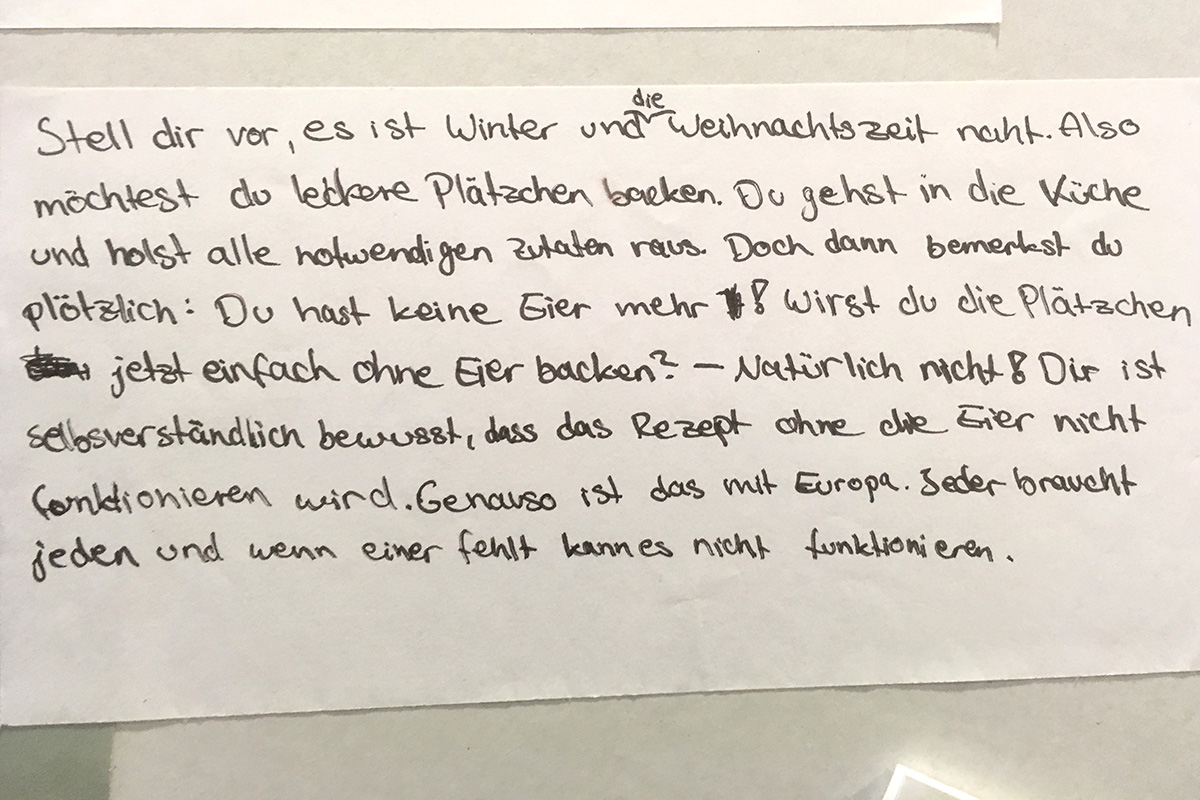 Stell dir vor, es ist Winter und die Weihnachtszeit naht. Also
möchtest du leckere Plätzchen backen. Du gehst in die Küche
und holst alle notwendigen Zutaten raus. Doch dann bemerkst du
plötzlich: Du hast keine Eier mehr! Wirst du die Plätzchen
jetzt einfach ohne Eier backen? – Natürlich nicht! Dir ist
selbsverständlich bewusst, dass das Rezept ohne die Eier nicht
funktionieren wird. Genauso ist das mit Europa. Jeder braucht
jeden und wenn einer fehlt kann es nicht funktionieren.